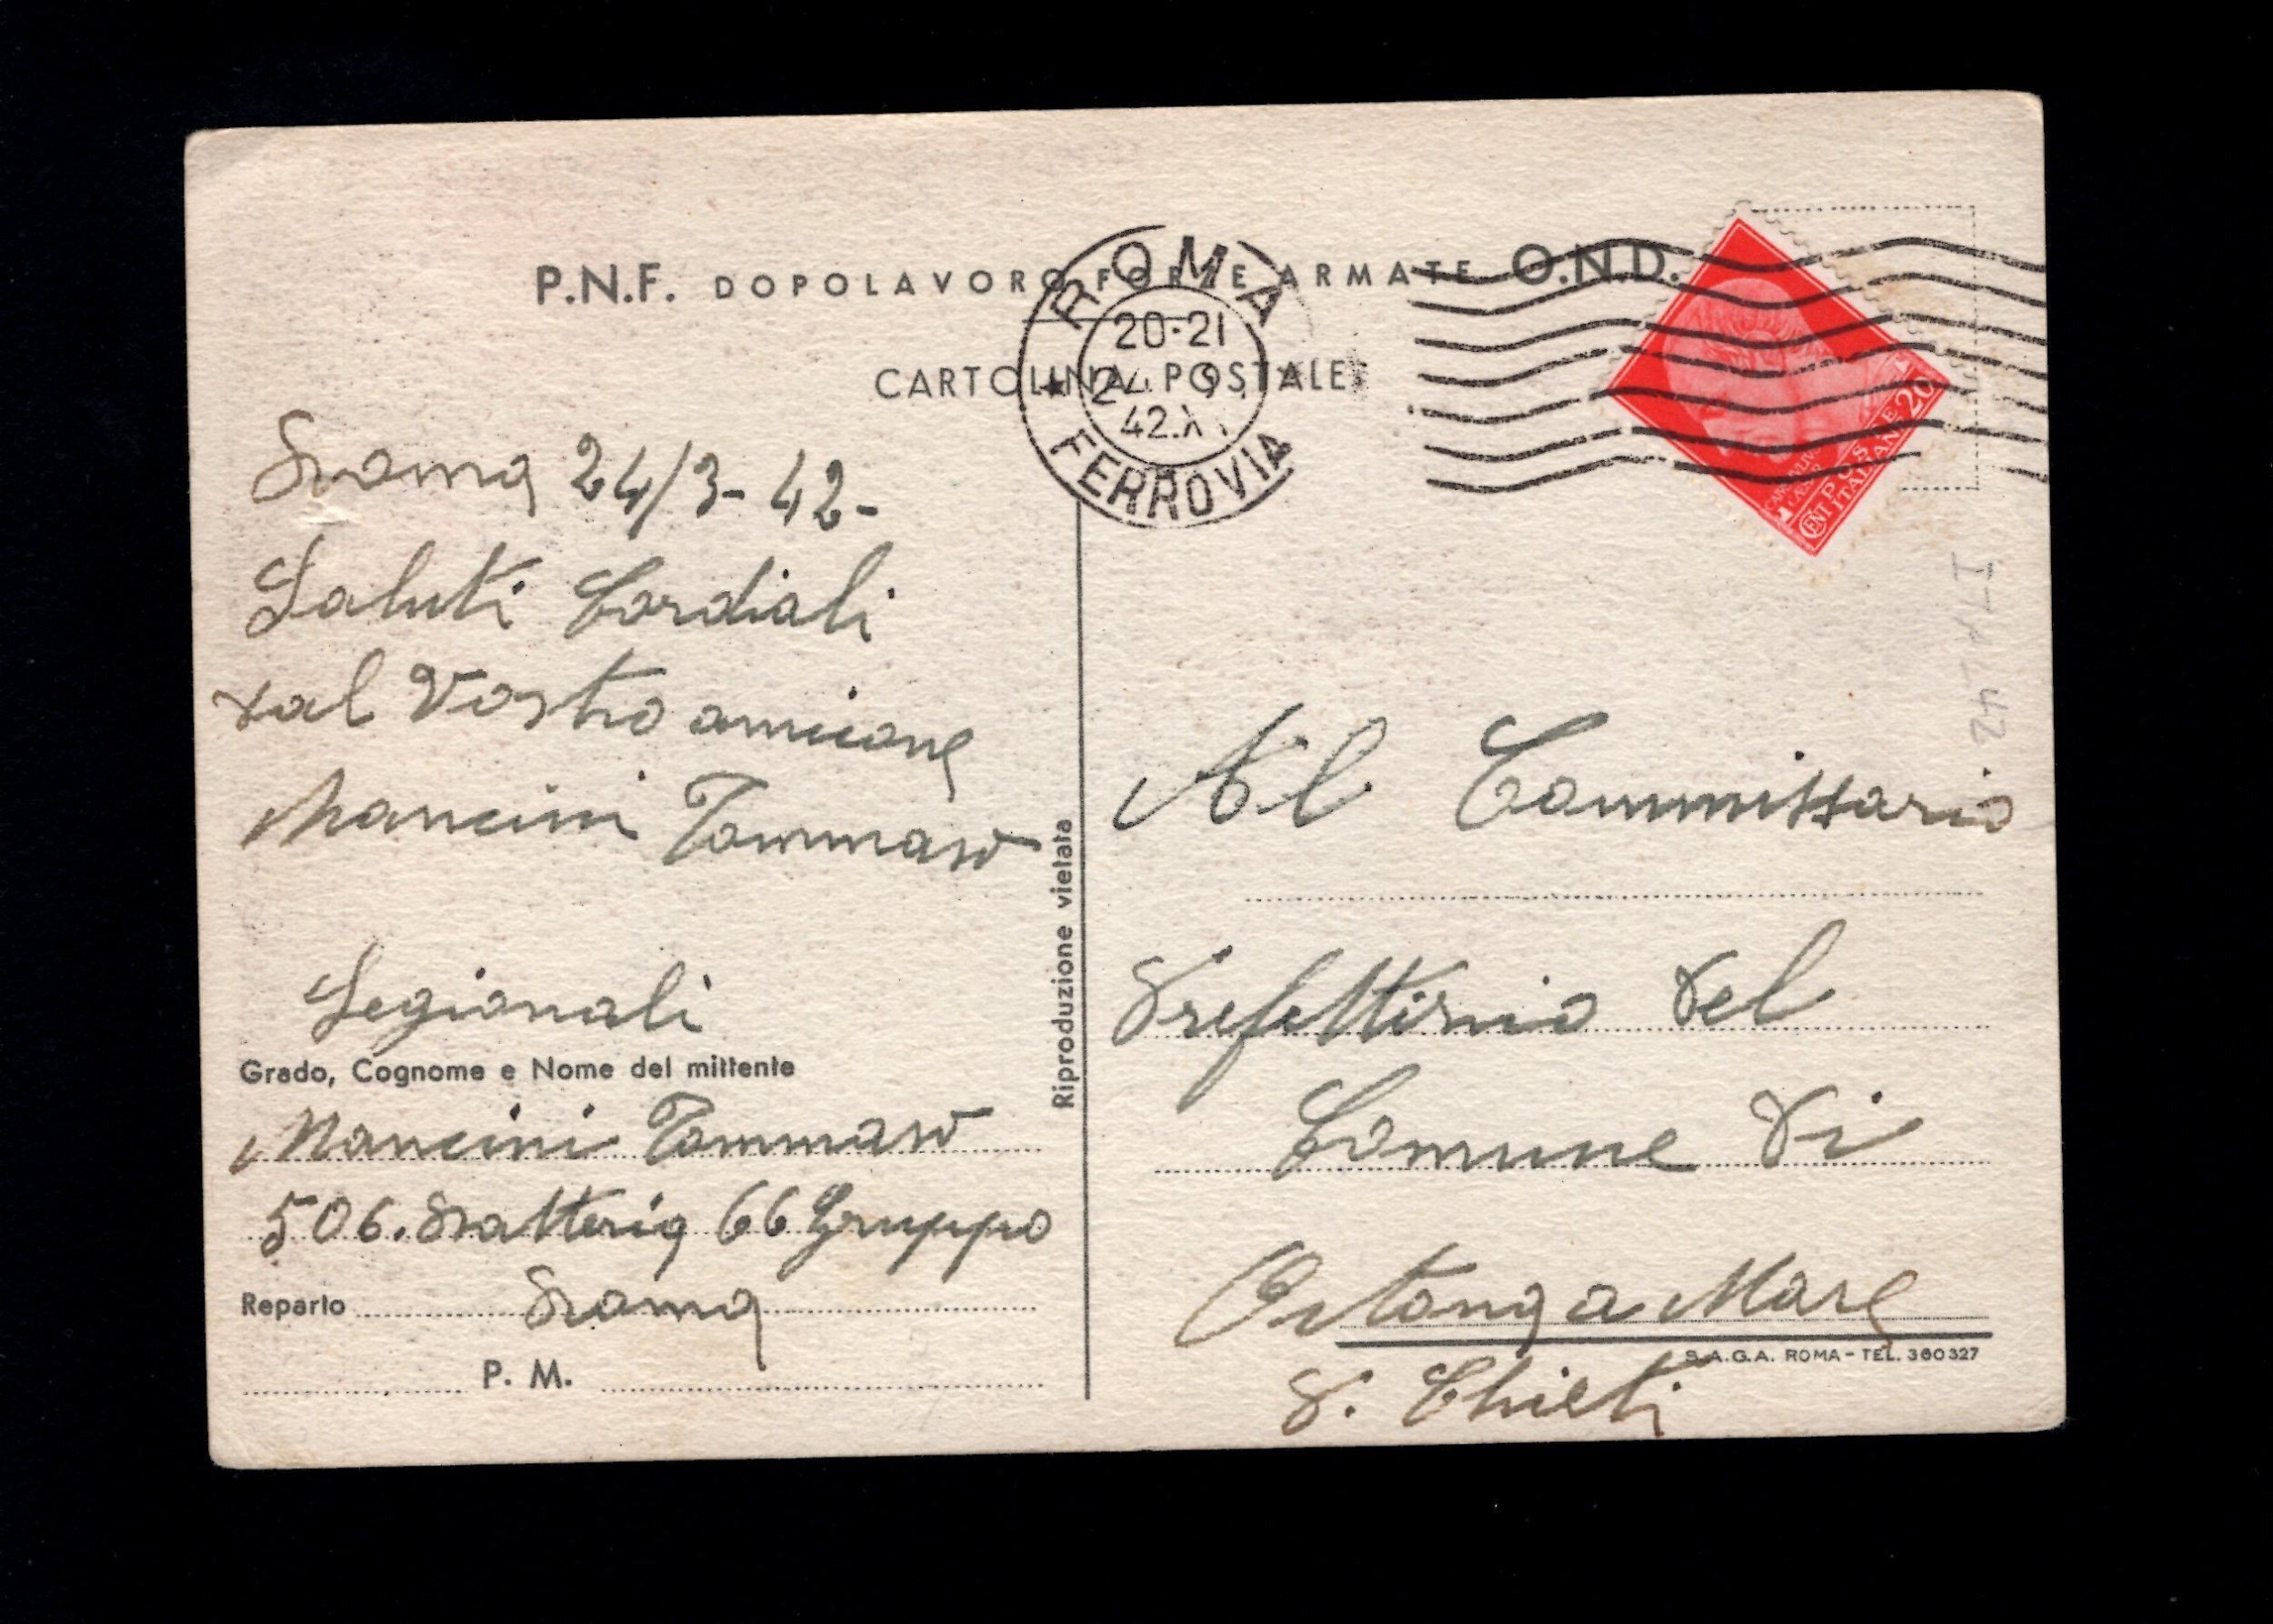 P.N.F. DOPOLAVORO FORZE ARMATE O.N.D.
CARTOLINA POSTALE
ROMA
20·21
24
42.X
FERROVIA
CENT 20
POSTE
ITALIANE
ITA-42
Roma 24/3-42-
Saluti Cordiali
dal Vostro amicone
Mancini Tommaso
Legionali
Grado, Cognome e Nome del mittente
Mancini Tommaso
506. Batteria 66 Gruppo
Reparto Roma
P. M.
Riproduzione vietata
Al Commissario
Prefettirnio del
Comune di
Ortona a Mare
S.A.G.A. ROMA - TEL. 360327
P. Chieti